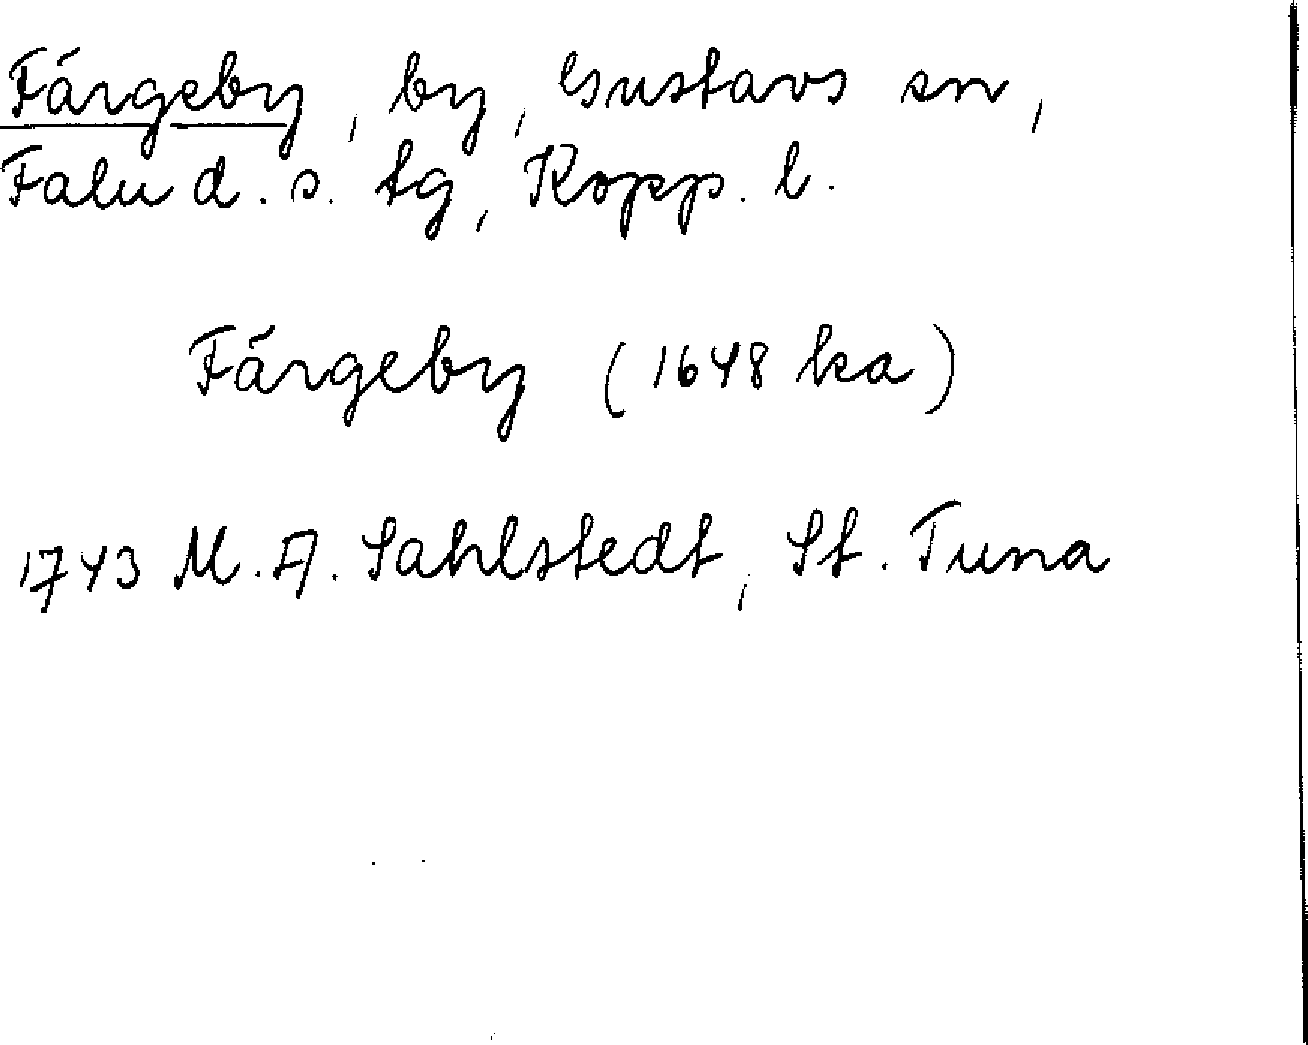 Färgeby, by, Gustavs sn,
Falu d. s. tg, Kopp. l.
Färgeby (1648 ka)
1743 M. A. Sahlstedt, St. Tuna